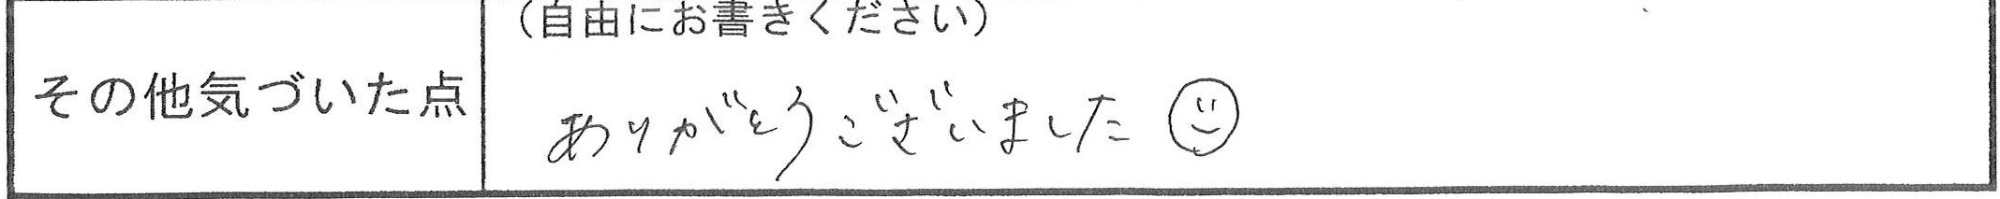 （自由にお書きください）
その他気づいた点
ありがとうございました